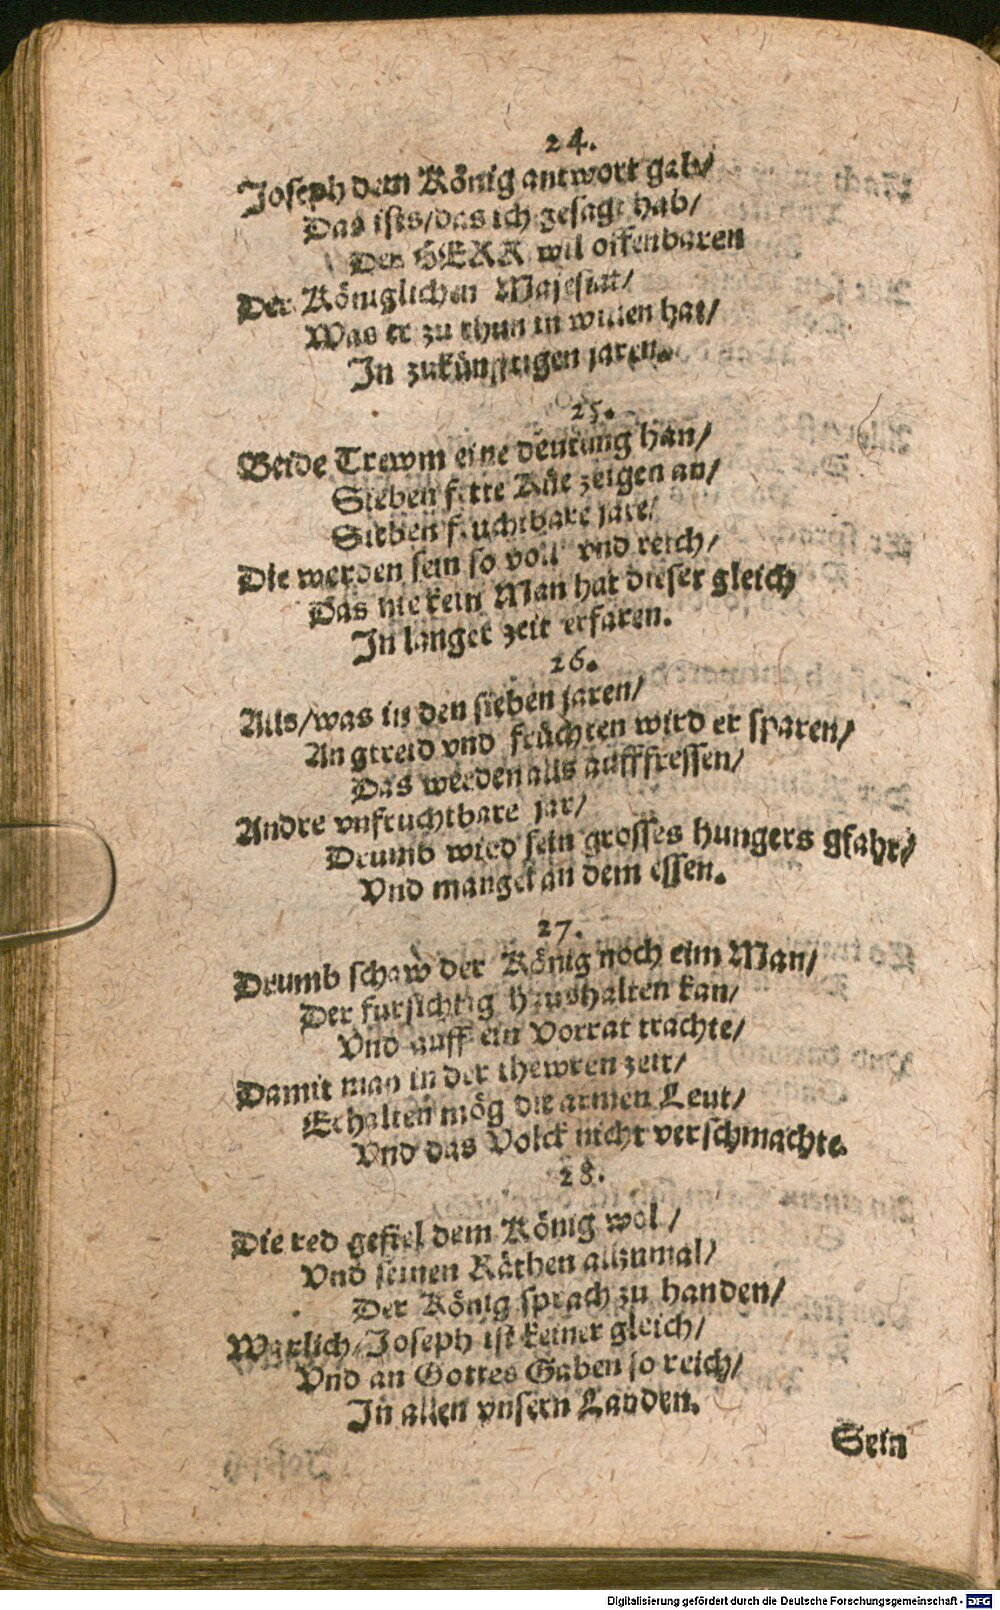 24.
Joseph dem König antwort gab/
Das ists/das ich gesagt hab/
Der HERR wil offenbaren
Der Königlichen Majestat/
Was er zu thun in willen hat/
In zukünfftigen jaren.
25.
Beide Trewm eine deutung han/
Sieben fette Küe zeigen an/
Sieben fruchtbare jare/
Die werden sein so voll vnd reich/
Das nie kein Man hat dieser gleich
In langer zeit erfaren.
26.
Alls/was in den sieben jaren/
An gtreid vnd früchten wird er sparen/
Das werden alls aufffressen/
Andre vnfruchtbare jar/
Drumb wird sein grosses hungers gfahr/
Vnd mangel an dem essen.
27.
Drumb schaw der König noch eim Man/
Der fursichtig haushalten kan/
Vnd auff ein Vorrat trachte/
Damit man in der thewren zeit/
Erhalten mög die armen Leut/
Vnd das Volck nicht verschmachte.
28.
Die red gefiel dem König wol/
Vnd seinen Räthen allzumal/
Der König sprach zu handen/
Warlich/Joseph ist keiner gleich/
Vnd an Gottes Gaben so reich/
In allen vnsern Landen.
Sein
Digitalisierung gefördert durch die Deutsche Forschungsgemeinschaft - DFG